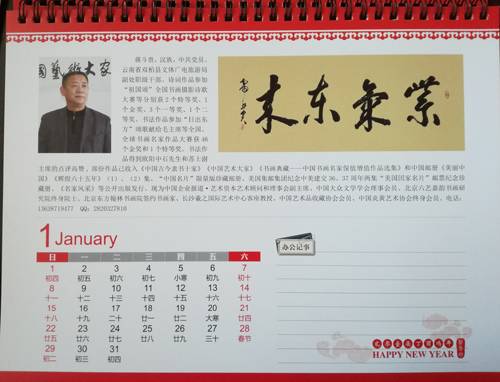 国艺术大家
蒋斗贵：汉族，中共党员，
云南省双柏县文体广电旅游局
副处职级干部。诗词作品参加
“祖国颂”全国书画摄影诗歌
大赛等分别获 2 个特等奖，1 个
金奖，3 个一等奖，1 个二
等奖。书法作品参加“日出东
方”颂联献给毛主席等全国、
全球书画名家作品大赛获 46
个金奖和 1 个特等奖。书法作
品得到欧阳中石先生和苏士澍
主席的点评高赞，部份作品已收入《中国古今隶书千家》《中国艺术大家》《书画典藏——中国书画名家保值增值作品选集》和中国邮册《美丽中
国》《辉煌六十五年》（1）、（2）集、“中国名片”限量版珍藏邮册、美国集邮集团纪念中美建交 36、37 周年画集“美国国家名片”邮票纪念珍
藏册、《名家风采》等公开出版发行。现为中国企业报道·艺术资本艺术顾问和理事会副主席、中国大众文学学会理事会员、北京六艺嘉韵书画研究
院终身院士、北京东方翰林书画院签约书画家、长沙羲之国际艺术中心客座教授、中国艺术品收藏协会会员、中国炎黄艺术协会终身会员。电话：
13638719477 QQ：2820327810
紫气东来
1 January
办公记事
日 一 二 三 四 五 六
1 2 3 4 5 6 7
初四 初五 初六 初七 小寒 初九 初十
8 9 10 11 12 13 14
十一 十二 十三 十四 十五 十六 十七
15 16 17 18 19 20 21
十八 十九 二十 廿一 廿二 大寒 廿四
22 23 24 25 26 27 28
廿五 廿六 廿七 廿八 廿九 三十 春节
29 30 31
初二 初三 初四
HAPPY NEW YEAR